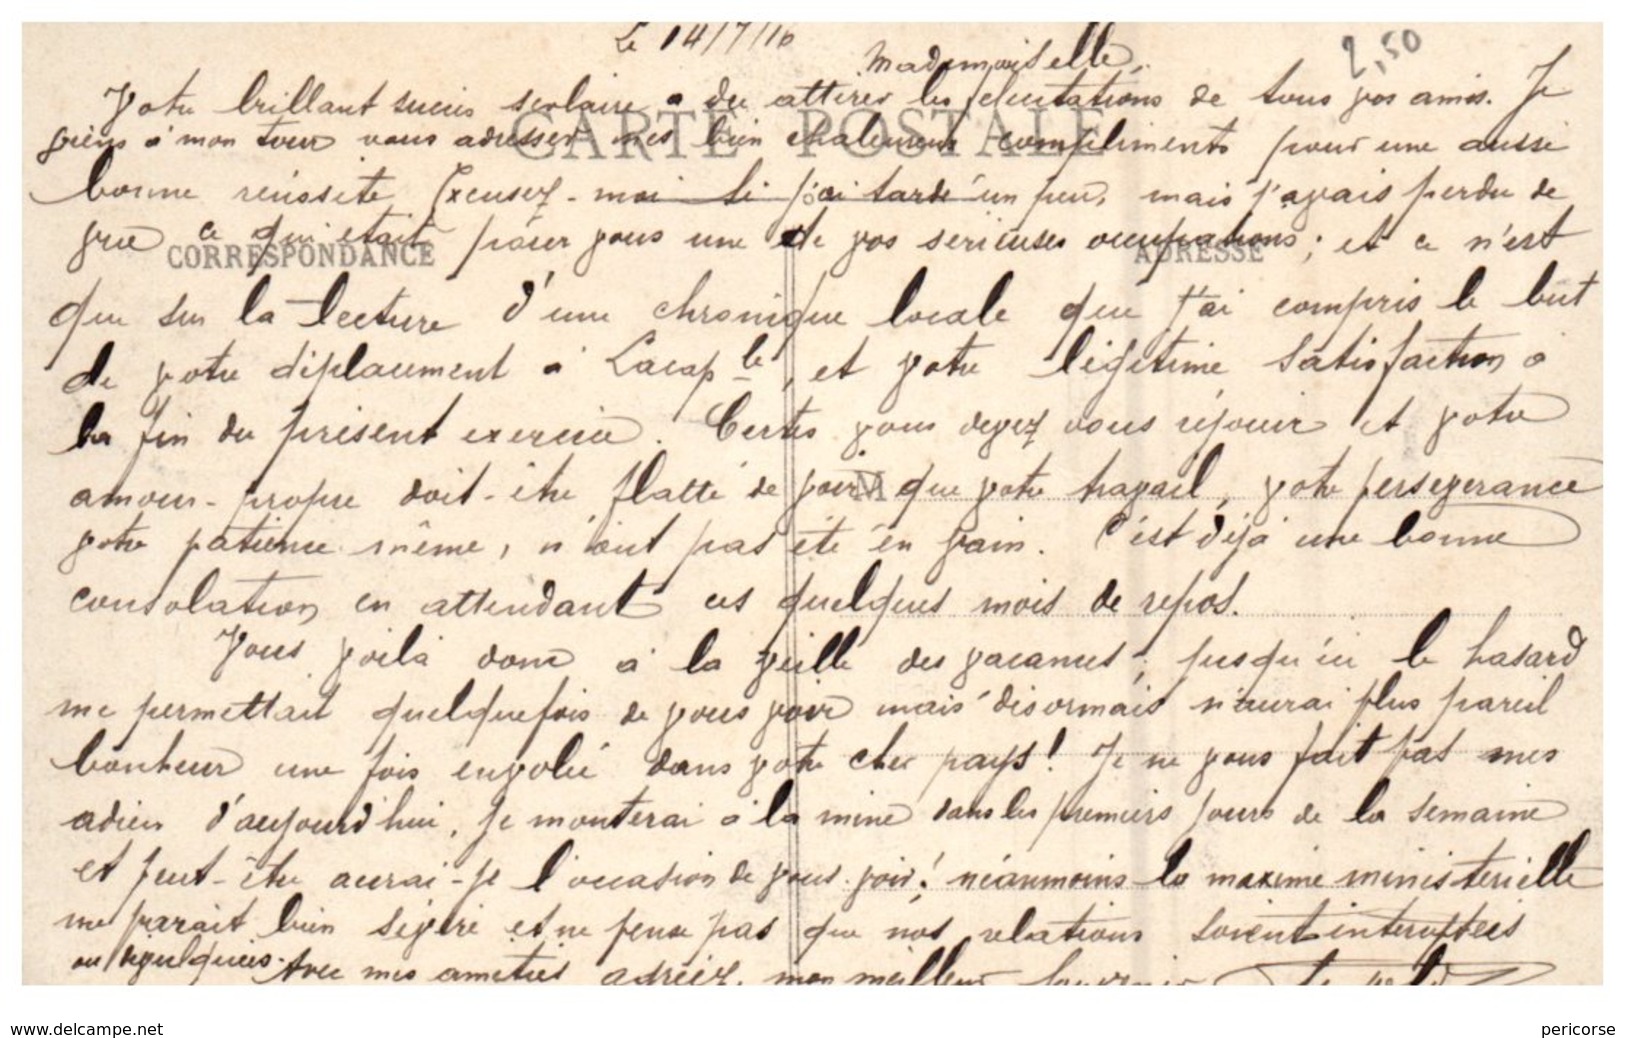 Le 14/7/16
2,50
Mademoiselle,
Votre brillant succès scolaire a du attirer les félicitations de tous vos amis. Je
viens à mon tour vous adresser mes bien chaleureux compliments pour une aussi
CARTE POSTALE
bonne réussite. Excusez-moi si j'ai tardé un peu, mais j'avais perdu de
vue ce qui était pour vous une de vos sérieuses occupations; et ce n'est
CORRESPONDANCE ADRESSE
que sur la lecture d'une chronique locale que j'ai compris le but
de votre déplacement à Lacap le, et votre légitime satisfaction à
la fin du présent exercice. Certes vous devez vous réjouir et votre
amour-propre doit-être flatté de voir que votre travail, votre perseverance
M
votre patience même, n'aient pas été en vain. C'est déjà une bonne
consolation en attendant ces quelques mois de repos.
Vous voilà donc à la veille des vacances; jusqu'ici le hasard
me permettait quelquefois de vous voir mais désormais n'aurai plus pareil
bonheur une fois envolée dans votre cher pays! Je ne vous fait pas mes
adieu d'aujourd'hui, je monterai à la mine dans les premiers jours de la semaine
et peut-être aurai-je l'occasion de vous voir! néanmoins la maxime ministerielle
me parait bien sévère et ne peux pas que nos relations soient interuptées
Avec mes amitiés agréez, mon meilleur souvenir
www.delcampe.net
pericorse